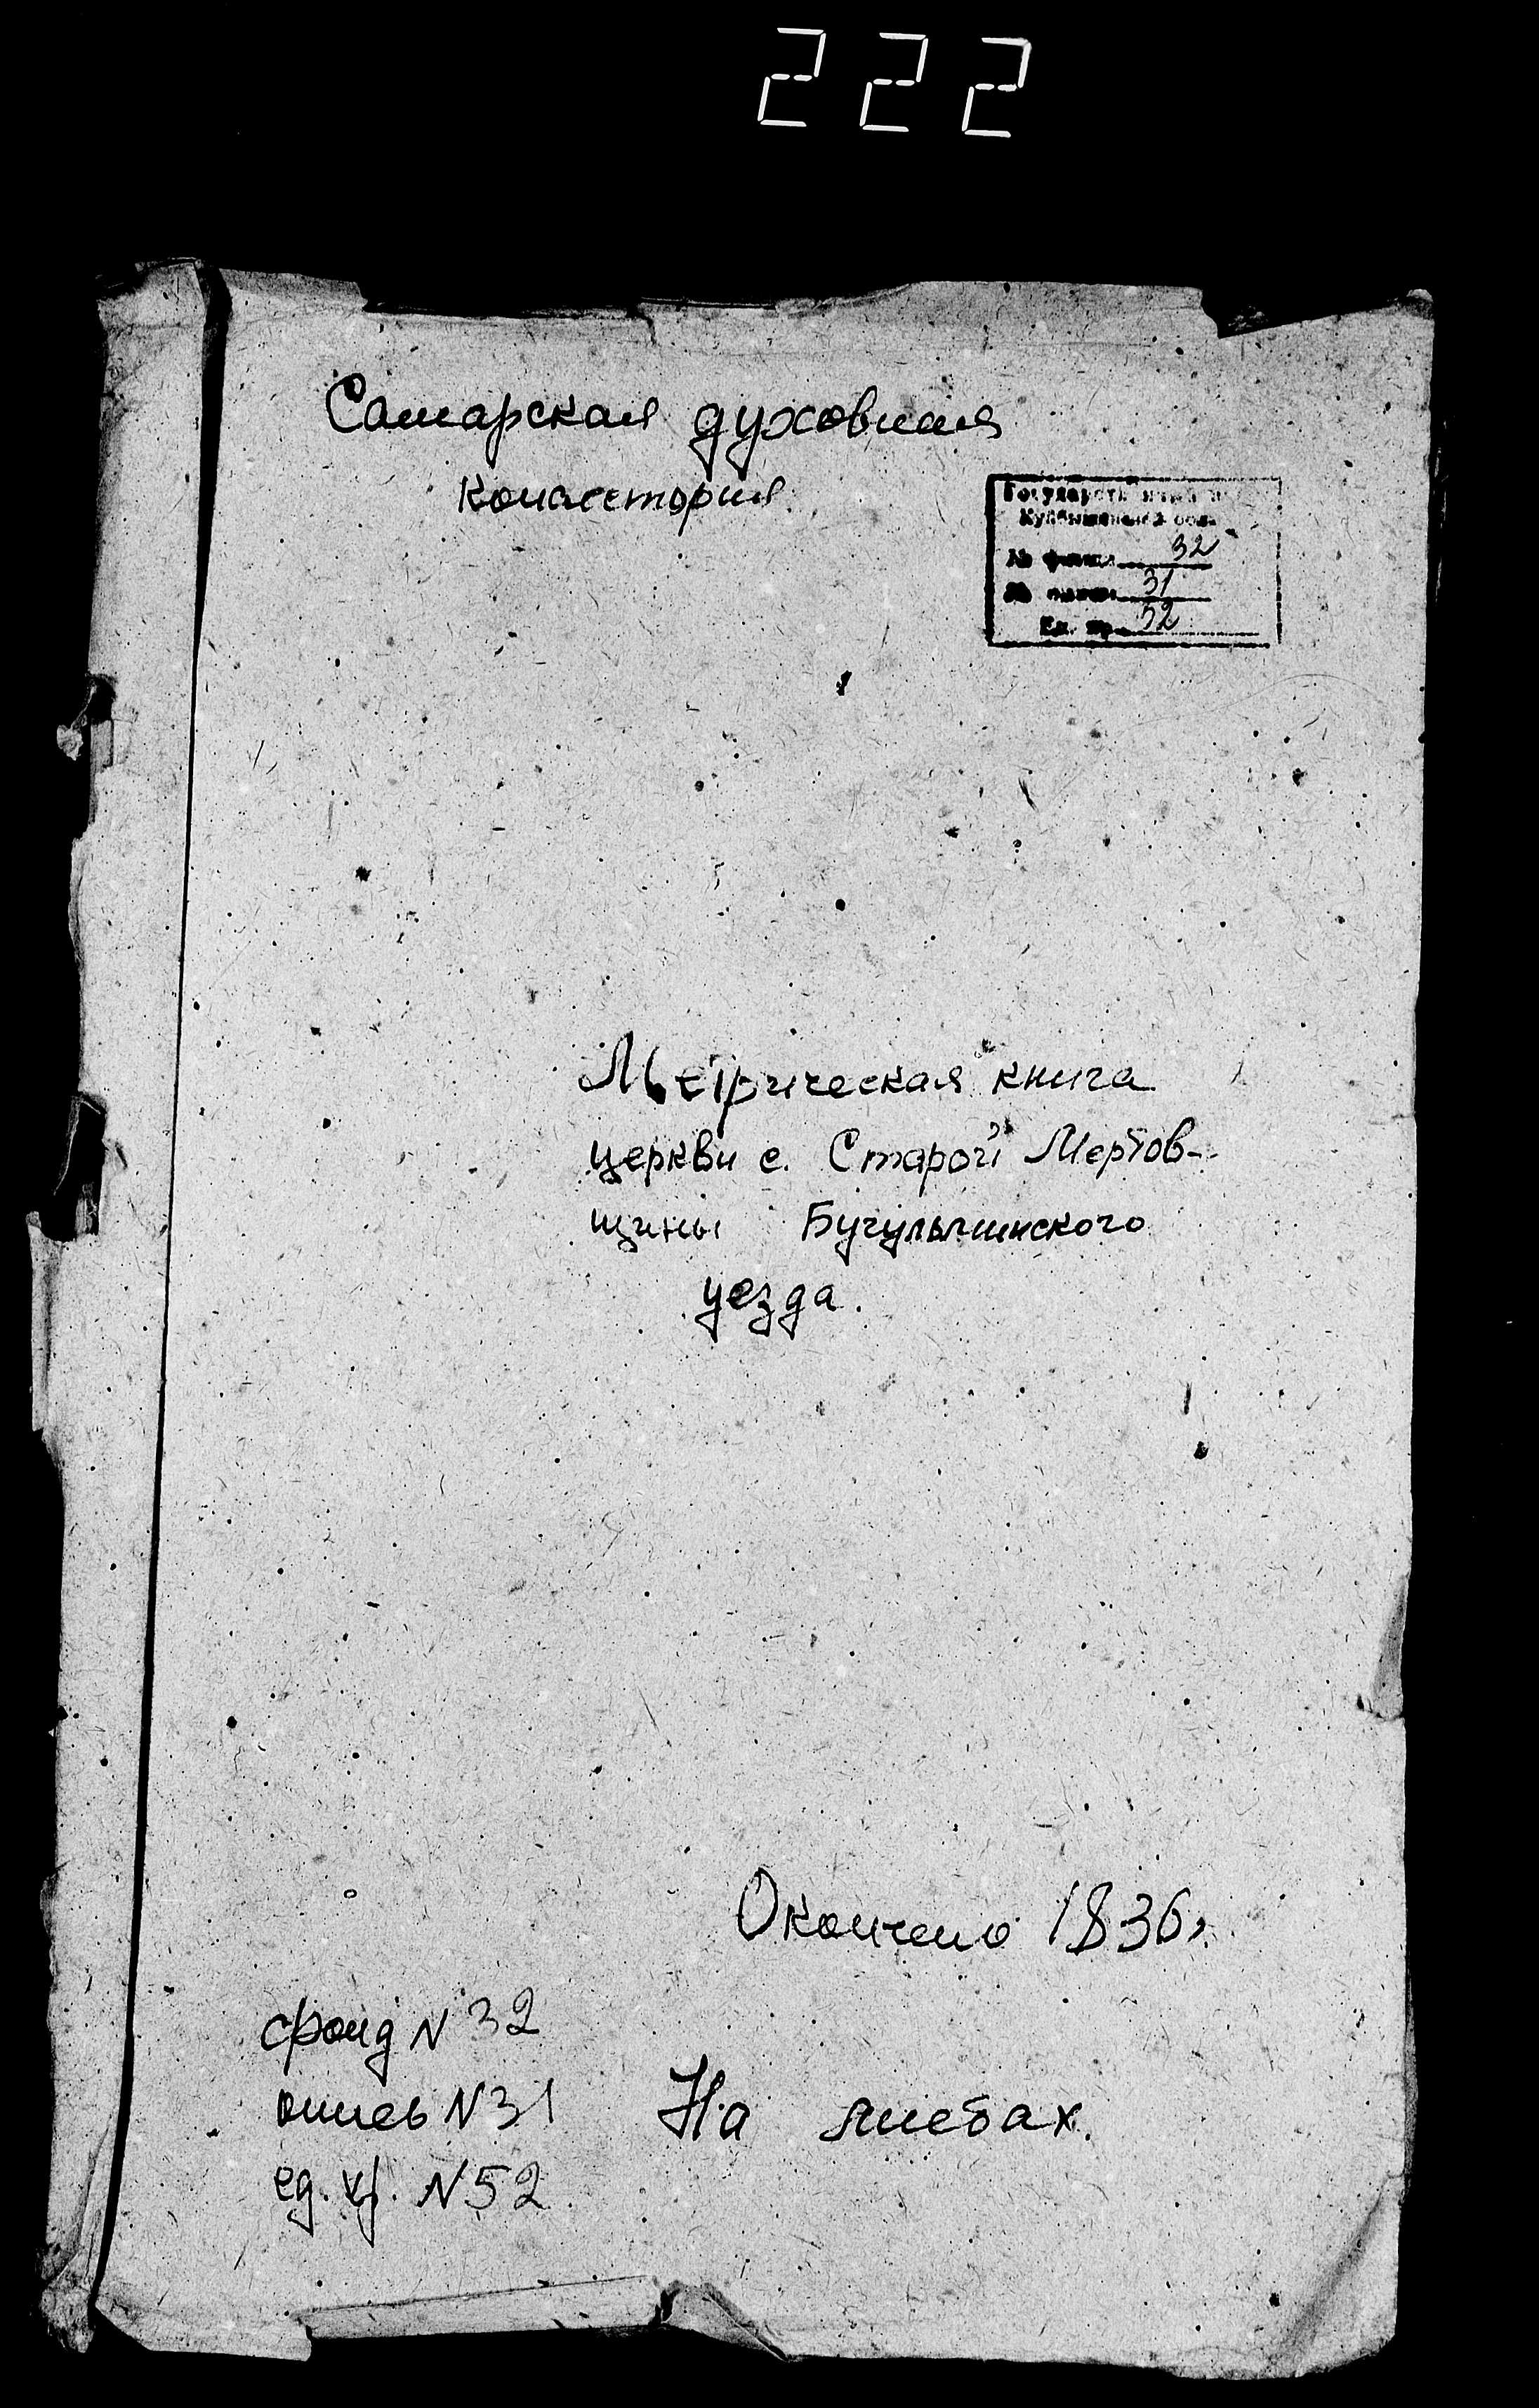 222
Самарская духовная
консистория.
Государственный
Куйбышевской обл.
№ фонда 32
№ описи 31
Ед. хр. 52
Метрическая книга
церкви с. Старой Мертов-
щины Бугульминского
уезда.
Окончено 1836г.
фонд N 32
опись N 31
На листах.
ед. хр. N 52